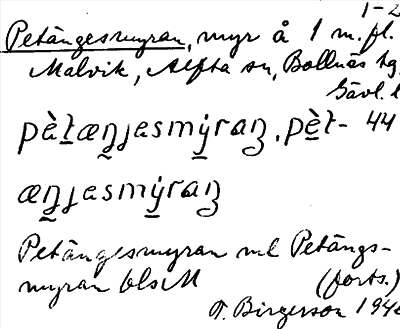 1-2
Petängesmyran, myr å 1 m. fl.
Malvik, Alfta sn, Bollnäs tg,
Gävl. l
pètæŋɟasmýraŋ, pèt- 44
æŋɟasmýraŋ
Petängesmyran ml Petängs-
myran blsM (forts.)
F. Birgerson 194